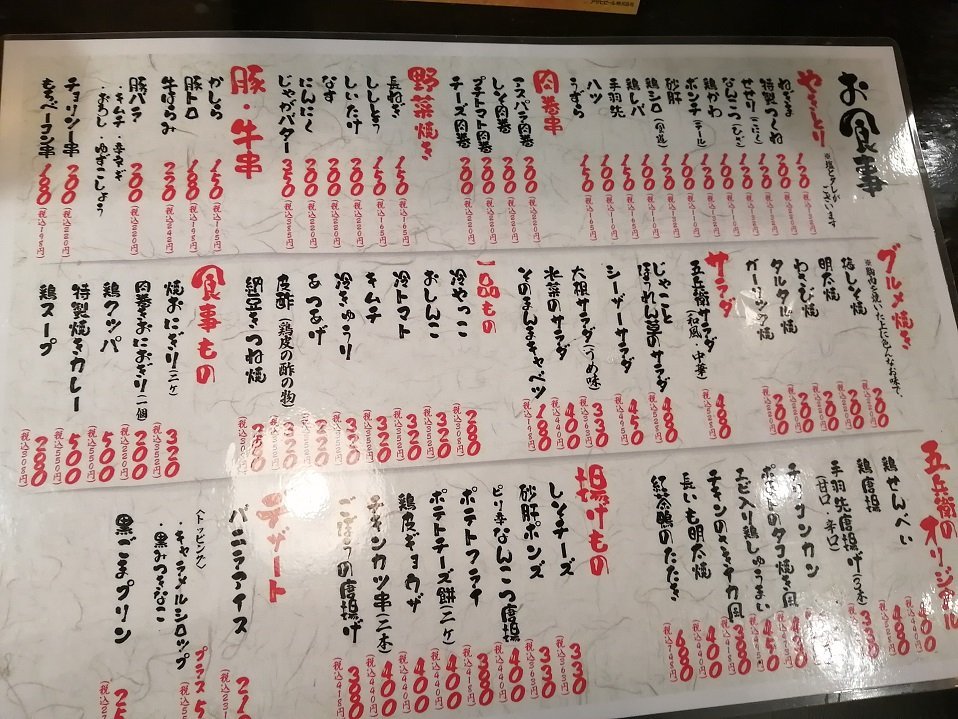 お食事
やきとり
※塩とタレがございます
ねぎま 120 (税込132円)
特製つくね 200 (税込220円)
ササミ(さび)
なんこつ(ひざ)
鶏かわ
ボンチ(テール)
砂肝
鶏シロ
鶏レバ
手羽先
ハツ 150 (税込165円)
うずら 150 (税込165円)
肉巻串
アスパラ肉巻 200 (税込220円)
しそ肉巻 200 (税込220円)
プチトマト肉巻 200 (税込220円)
チーズ肉巻 200 (税込220円)
野菜焼き
長ねぎ 150 (税込165円)
ししとう 150 (税込165円)
しいたけ 200 (税込220円)
なす 200 (税込220円)
にんにく 200 (税込220円)
じゃがバター 350 (税込385円)
豚・牛串
かしら 150 (税込165円)
豚トロ 180 (税込198円)
牛はらみ 220 (税込242円)
豚バラ 200 (税込220円)
・キムチ ・辛ネギ
・おろし ・ゆずこしょう
チョリソー串 200 (税込220円)
もちベーコン串 180 (税込198円)
グルメ焼き
※胸肉を焼いた上に色んなお味で。
梅しそ焼 200 (税込220円)
明太焼 200 (税込220円)
わさび焼 200 (税込220円)
タルタル焼 200 (税込220円)
ガーリック焼 200 (税込220円)
サラダ
五兵衛サラダ(和風・中華) 480 (税込528円)
じゃことほうれん草のサラダ 480 (税込528円)
シーザーサラダ 450 (税込495円)
大根サラダ(うめ味) 330 (税込363円)
水菜のサラダ 400 (税込440円)
そのまんまキャベツ 180 (税込198円)
一品もの
冷やっこ 280 (税込308円)
おしんこ 320 (税込352円)
冷トマト 320 (税込352円)
キムチ 320 (税込352円)
冷きゅうり 320 (税込352円)
あつあげ 220
皮酢(鶏皮の酢の物) 320
納豆きつね焼 280
食事もの
焼おにぎり(二ケ) 320 (税込352円)
肉巻きおにぎり(一個) 200 (税込220円)
鶏クッパ 500 (税込550円)
特製焼きカレー 500 (税込550円)
鶏スープ 280 (税込308円)
五兵衛のオリジナル
鶏せんべい 400
鶏唐揚 480
手羽先唐揚げ(3本)
(甘口・辛口)
チョリソンカン
ポテトのタコ焼き風 430
エビ入り鶏しゅうまい 450
チキンのささチカ風
長いも明太焼 400
紅茶鴨のたたき 680
揚げもの
しそチーズ 330 (税込363円)
砂肝ポンズ 330 (税込363円)
ピリ辛なんこつ唐揚 400 (税込440円)
ポテトフライ 380 (税込418円)
ポテトチーズ餅(二ケ) 400 (税込440円)
鶏皮ギョウザ 400 (税込440円)
チキンカツ串(二本) 400 (税込440円)
ごぼうの唐揚げ 380 (税込418円)
デザート
バニラアイス 210 (税込231
〈トッピング〉
・キャラメルシロップ
・黒みつきなこ
プラス 5
黒ごまプリン 25